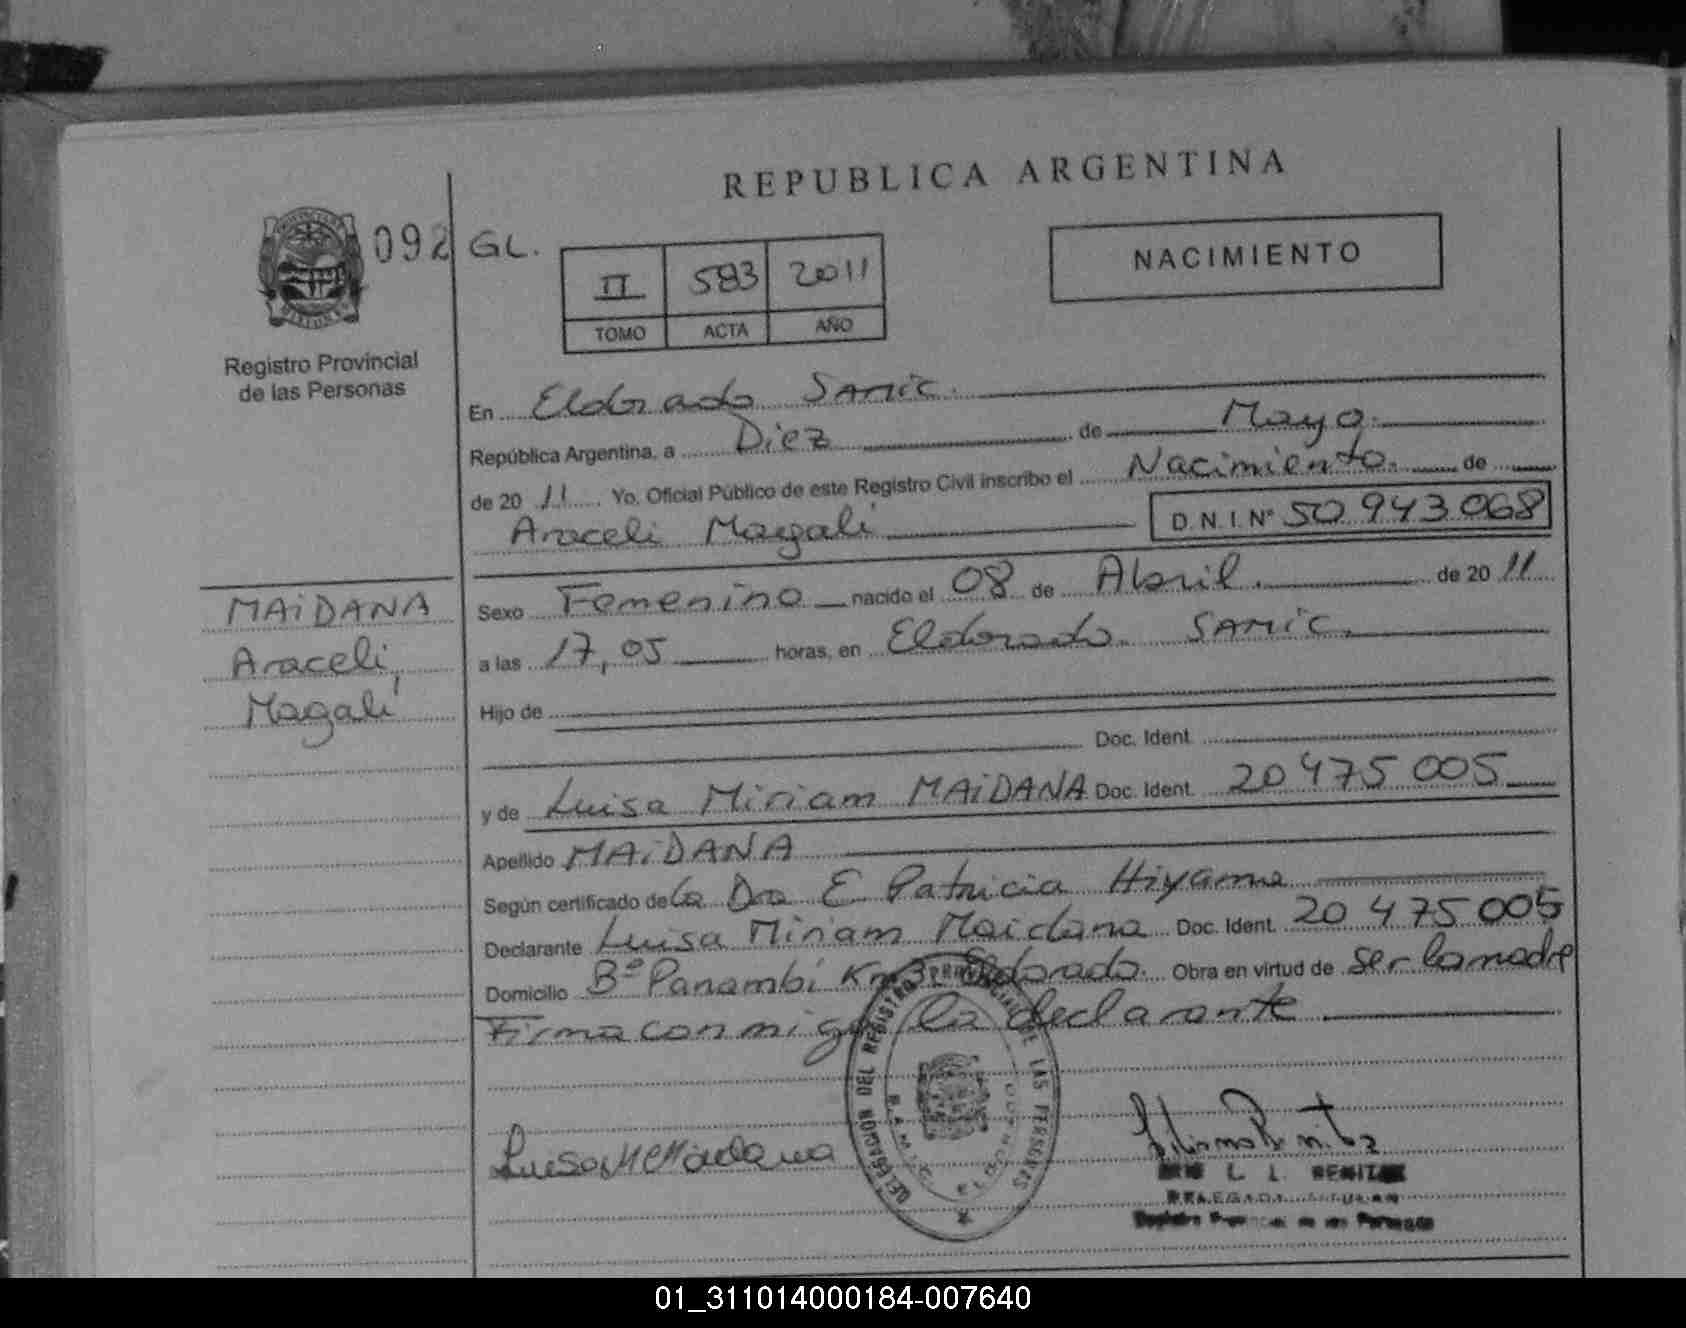 REPUBLICA ARGENTINA
092 GL.
NACIMIENTO
II 583 2011
TOMO ACTA AÑO
Registro Provincial
de las Personas
En Eldorado SAMIC.
República Argentina, a Diez de Mayo.
de 20 11. Yo, Oficial Público de este Registro Civil inscribo el Nacimiento. de
Araceli Magalí D.N.I.Nº 50 943.068
MAIDANA
Araceli,
Magalí
Sexo Femenino nacido el 08 de Abril. de 20 11
a las 17,05 horas, en Eldorado. SAMIC.
Hijo de
Doc. Ident.
y de Luisa Miriam MAIDANA Doc. Ident. 20 475 005
Apellido MAIDANA
Según certificado de la Dra E. Patricia
Declarante Luisa Miriam Maidana Doc. Ident. 20 475 005
Domicilio Bº Panambí Km 3 Eldorado. Obra en virtud de ser la madre
Firma conmigo la declarante
DELEGACION DEL REGISTRO PROVINCIAL DE LAS PERSONAS
L. I. BENITEZ
Registro Provincial de las Personas
01_311014000184-007640